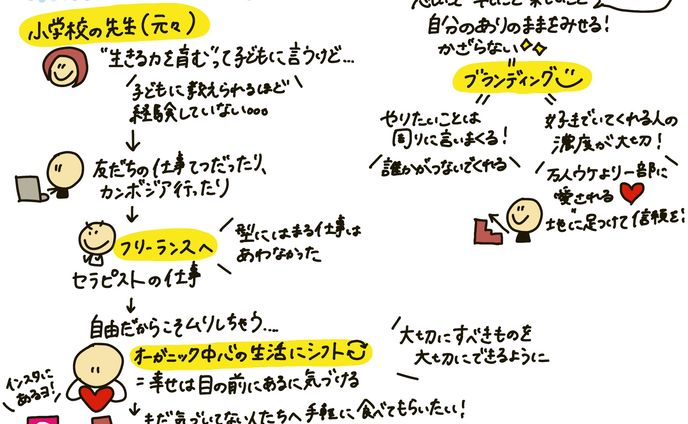 小学校の先生(元々)
"生きる力を育む"って子どもに言うけど…
子どもに教えられるほど
経験していない。。。
友だちの仕事てつだったり、
カンボジア行ったり
フリーランスへ
型にはまる仕事は
あわなかった
セラピストの仕事
自由だからこそムリしちゃう….
オーガニック中心の生活にシフト
=幸せは目の前にあるに気づける
インスタに
あるヨ!
まだ気づいてない人たちへ手軽に食べてもらいたい!
大切にすべきものを
大切にできるように
自分のありのままをみせる!
かざらない
ブランディング
やりたいことは
周りに言いまくる!
誰かがつないでくれる
好きでいてくれる人の
濃度が大切!
万人ウケより一部に
愛される
地に足つけて信頼を